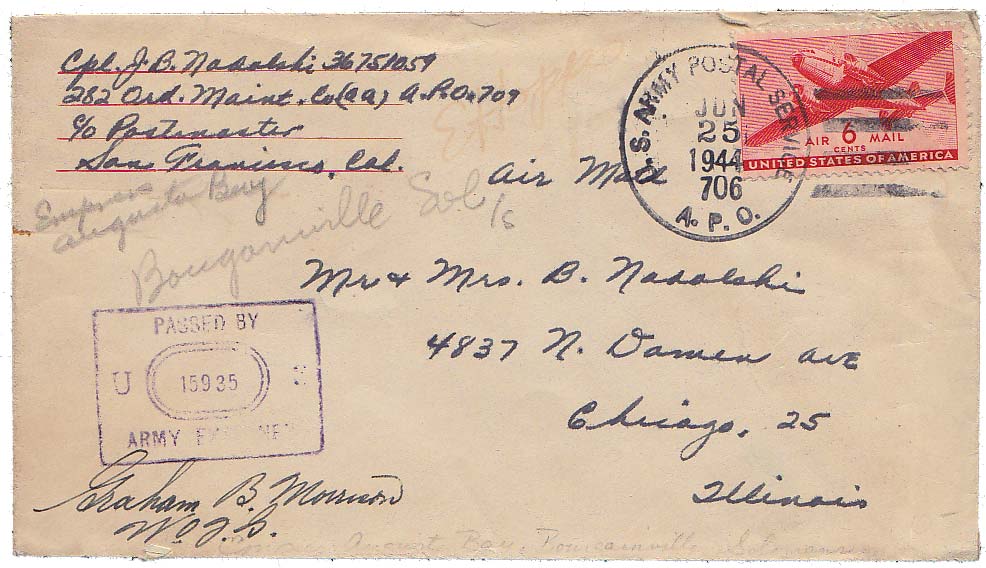 Cpl. J. B. Nadolski 36751059
282 Ord. Maint. Co (aa) A.P.O. 709
c/o Postmaster
San Francisco, Cal.
Air Mail
U.S. ARMY POSTAL SERVICE
JUN
25
1944
706
A. P. O.
AIR 6 MAIL
CENTS
UNITED STATES OF AMERICA
Empress
Augusta Bay
Bouganville Sol Is
Mr & Mrs. B. Nadolski
4837 N. Damen ave
Chicago, 25
Illinois
PASSED BY
U 15935
ARMY EXAMINER
Graham B. Morrison
W.O.J.G.
August Bay, Bougainville Solomons